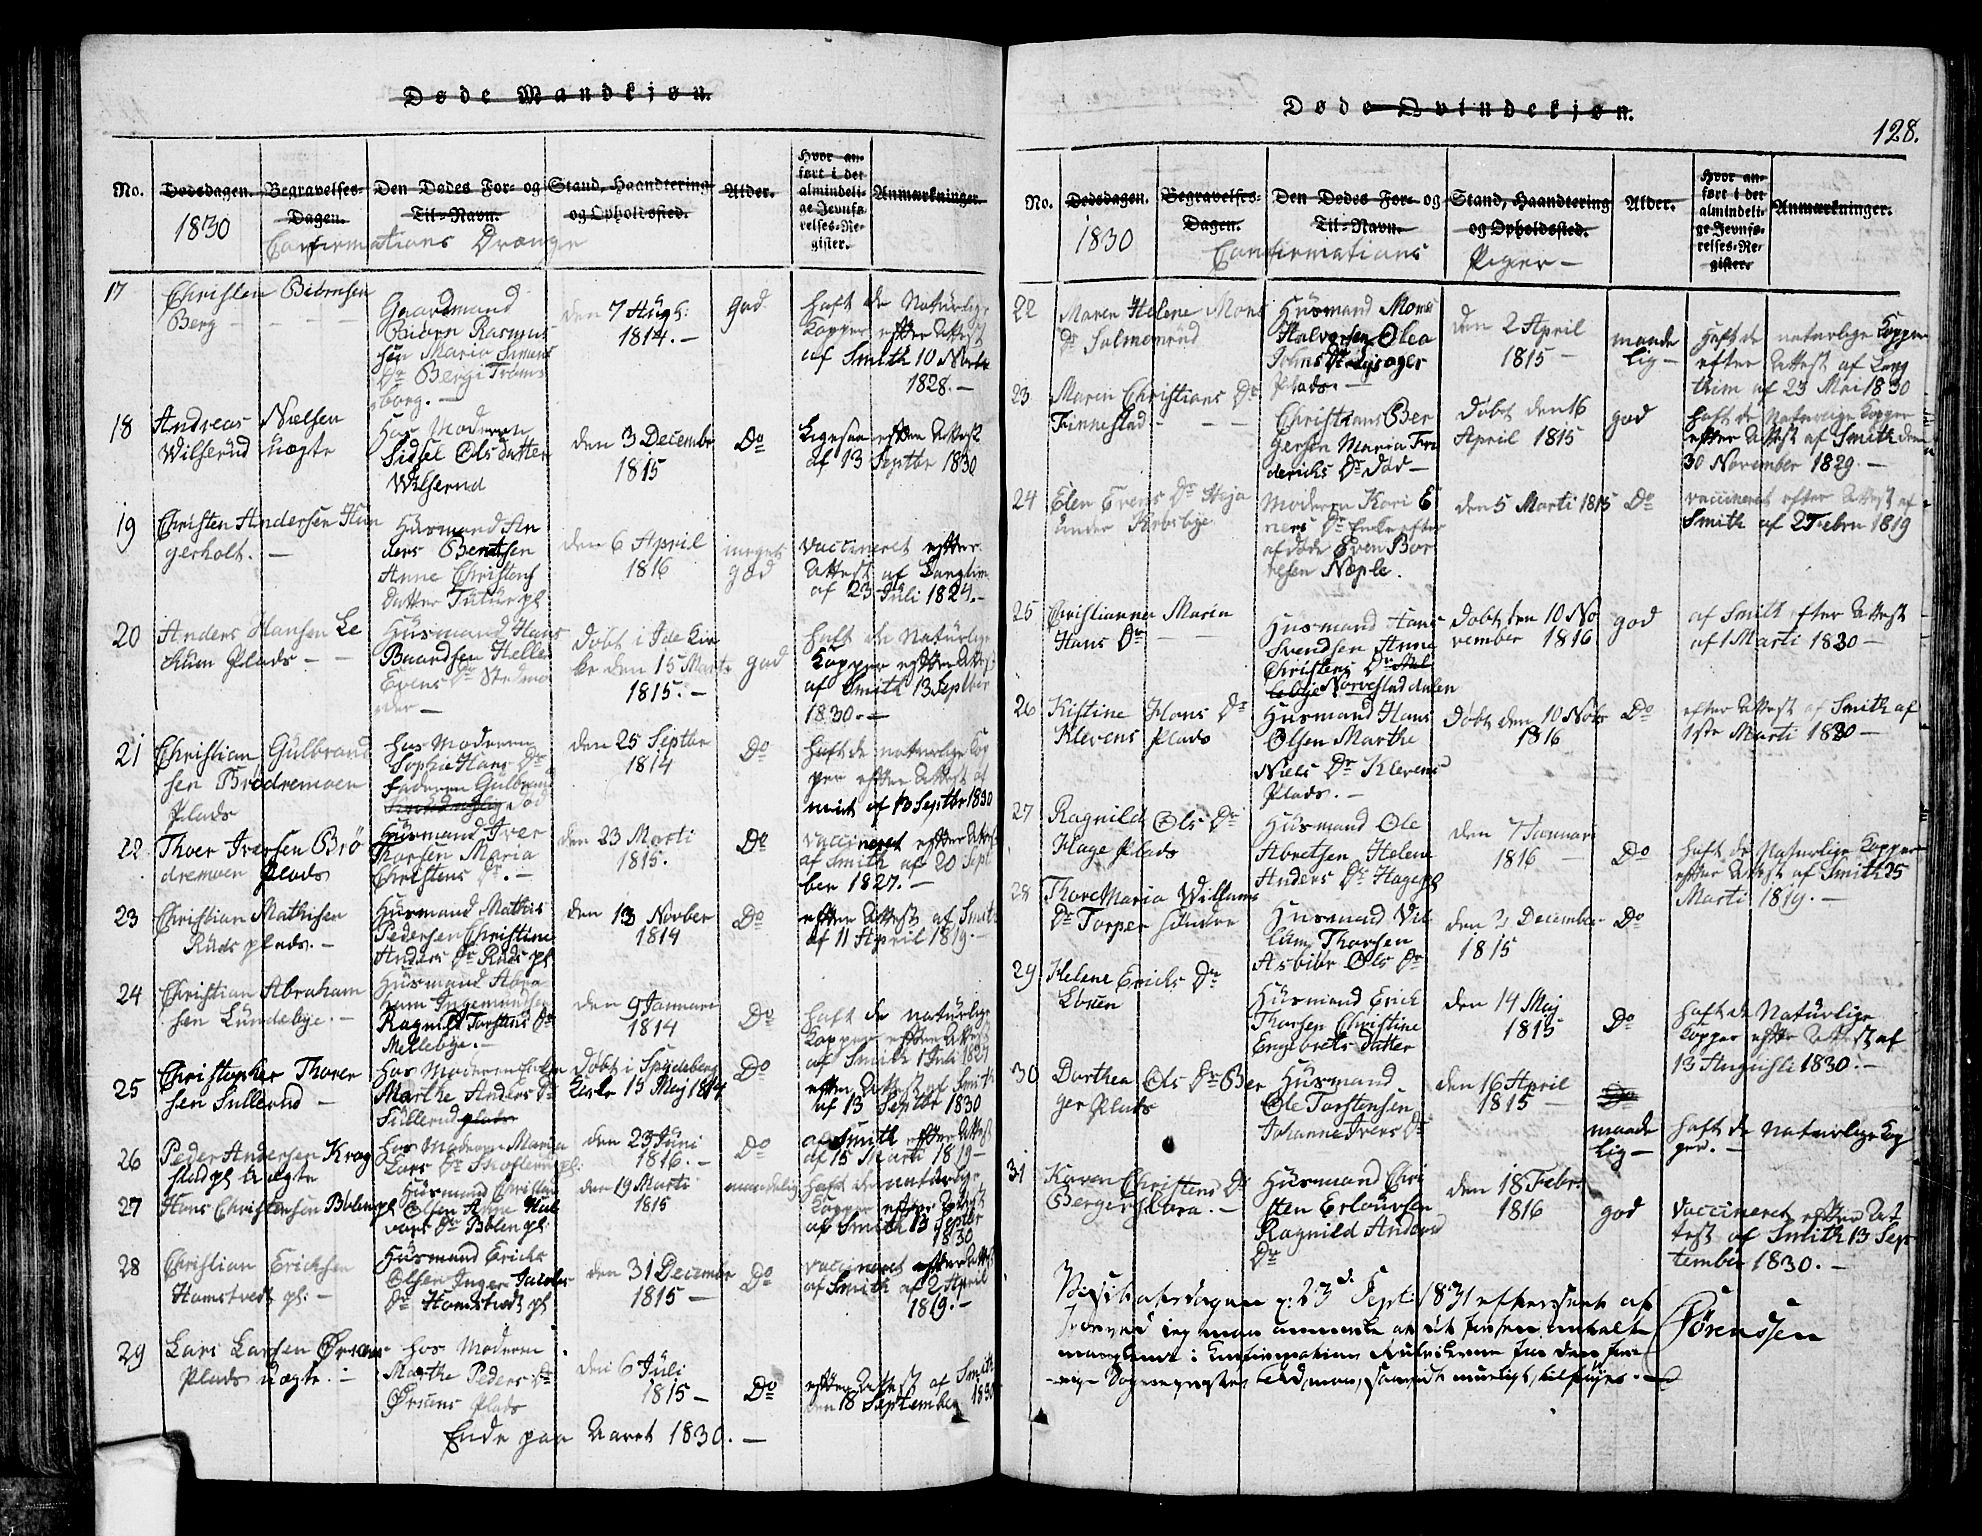 Døde Mandkjøn.
No.
Dødsdagen.
1830
Begravelses-
Dagen.
Den Dødes For- og
Til-Navn.
Stand, Haandtering
og Opholdssted.
Alder.
Hvor an-
ført i det
almindeli-
ge Jevnfø-
relses-Re-
gister.
Anmærkninger.
Confirmations Drænge
17
Christen Biörnsen
Berg
Gaardmand
Biörn Rasmus
sen Maria Simens
Dr Berg i Trøms
borg.
den 7 Augs:
1814.
god
haft de Naturlige
Kopper efter Attest
af Smith 10 Novbr
1828.
18
Andreas Nielsen
Wilserud uægte
hos Moderen
Sidsel Olsdatter
Wilserud
den 3 December
1815
Do
Ligesaa efter Attest
af 13 Septbr 1830
19
Christen Andersen Hun
gerholt.
Husmand An
ders Berntsen
Anne Christens
datter
den 6 April
1816
meget
god
vaccineret efter
Attest af Langtim
af 23 Juli 1824.
20
Anders Hansen Le
kum Plads
Husmand Hans
Baardsen Helle
Evens Dr
Døbt i Ide Kir
ke den 15 Marts
1815.
god
haft de Naturlige
Kopper efter Attest
af Smith 13 Septber
1830.
21
Christian Gulbrand
sen Brødremoen
Plads
hos Moderen
Sophie Hans Dr
Faderen Gulbrand
den 25 Septbr
1814
Do
haft de naturlige Kop
per efter Attest af
Smit af 13 Septbr 1830
22
Thoer Iversen Brø
dremoen Plads
Husmand Iver
Thorsen Maria
Christens Dr.
den 23 Marti
1815.
Do
vaccineret efter Attest
af Smith af 20 Sept
ber 1827.
23
Christian Mathisen
Ruds plads.
Husmand Mathis
Pedersen Christine
Anders Dr Ruds pl
den 13 Novber
1814
Do
efter Attest af Smith
af 11 April 1819.
24
Christian Abraham
sen Lundebye.
Husmand Abra
ham Ingemundsen
Ragnild Torstens Dr
Mellebye.
den 9 Januari
1814
Do
haft de naturlige
Kopper efter Attest
af Smith 1 Juli 1827
25
Christopher Thorer
sen Sullerud
hos Moderen Enken
Marthe Anders Dr
Sullerud plads
Døbt i Spydeberg
Kirke 15 Maj 1814
Do
efter Attest af Smith
af 13 Septbr 1830
26
Peder Andersen Krog
stad pl. uægte
hos Moderen Maria
Lars Dr
den 23 Juni
1816.
Do
af Smith efter Attest
af 15 Marti 1819
27
Hans Christensen Bølen pl
Husmand Christen
Olsen Anne Hal
vors Dr Bølen pl.
den 19 Marti
1815
maadelig
haft de naturlige
Kopper efter Attest
af Smith 13 Septer
1830
28
Christian Ericksen
Hamstvedt pl.
Husmand Erick
Olsen Inger Jacobs
Dr Hamstvedt pl
den 31 December
1815
Do
vaccineret efter Attest
af Smith af 2 April
1819.
29
Lars Larsen Ørsiøen
Plads uægte.
hos Moderen
Marthe Peders Dr
Ørsiøens Plads
den 6 Juli
1815
Do
efter Attest af Smith
den 18 September 1830
Ende paa Aaret 1830.
Døde Qvindekjøn.
128.
No.
Dødsdagen.
1830
Begravelses-
Dagen.
Den Dødes For- og
Til-Navn.
Stand, Haandtering
og Opholdssted.
Alder.
Hvor an-
ført i det
almindeli-
ge Jevnfø-
relses-Re-
gister.
Anmærkninger.
Confirmations Piger
22
Maren Helene Mons
Dr Salmonrud
Husmand Mons
Halvorsen Olea
Johns Dr
Plads.
den 2 April
1815
maade
lig
Haft de naturlige Kopper
efter Attest af Lang
thim af 23 Mai 1830
23
Maren Christians Dr
Finnestad
Christians Ber
gersen Maria Fre
dericks Dr død
Døbt den 16
April 1815
god
haft de Naturlige Kopper
efter Attest af Smith den
30 November 1829.
24
Elen Evens Dr
under
Moderen Kari E
ners Dr Enke efter
afdøde Even Bor
resen Næple.
den 5 Marti 1815
Do
vaccineret efter Attest af
Smith af 2 Febru 1819
25
Christianne Maria
Hans Dr
Husmand Hans
Svendsen Anne
Christens Dr
Norvestad dalen
Døbt den 10 No
vember 1816
god
af Smith efter Attest
af 1 Marti 1830
26
Kistine Hans Dr
Klevens Plads
Husmand Hans
Olsen Marthe
Niels Dr Klevens
Plads.
Døbt den 10 Novb
1816
Do
efter Attest af Smith af
1ste Marti 1830
27
Ragnild Ols Dr
Hage Plads
Husmand Ole
Abretsen Helene
Anders Dr Hage pl
den 7 Januar
1816
Do
haft de Naturlige Kopper
efter Attest af Smith 25
Marti 1819.
28
Thore Maria Willums
Dr Torper søndre
Husmand Vil
lum Thorsen
Asbiør Ols Dr
den 21 December
1815
Do
29
Helene Ericks Dr
Løsen
Husmand Erick
Thorsen Christine
Engebrets Datter
den 14 Maj
1815
Do
haft de Naturlige
Kopper efter Attest af
13 Auguste 1830.
30
Dorthea Ols Dr Ber
ger Plads
Husmand
Ole Torstensen
Johanne Ivers Dr
den 16 April
1815
Do
maade
lig
haft de Naturlige Kop
per.
31
Karen Christens Dr
Berger
Husmand Chri
sten Erlandsen
Ragnild Anders
Dr
den 18 Febr.
1816
god
Vaccineret efter At
test af Smith 13 Sep
tember 1830.
23d Sept: 1831 efterseet
Sørenssen